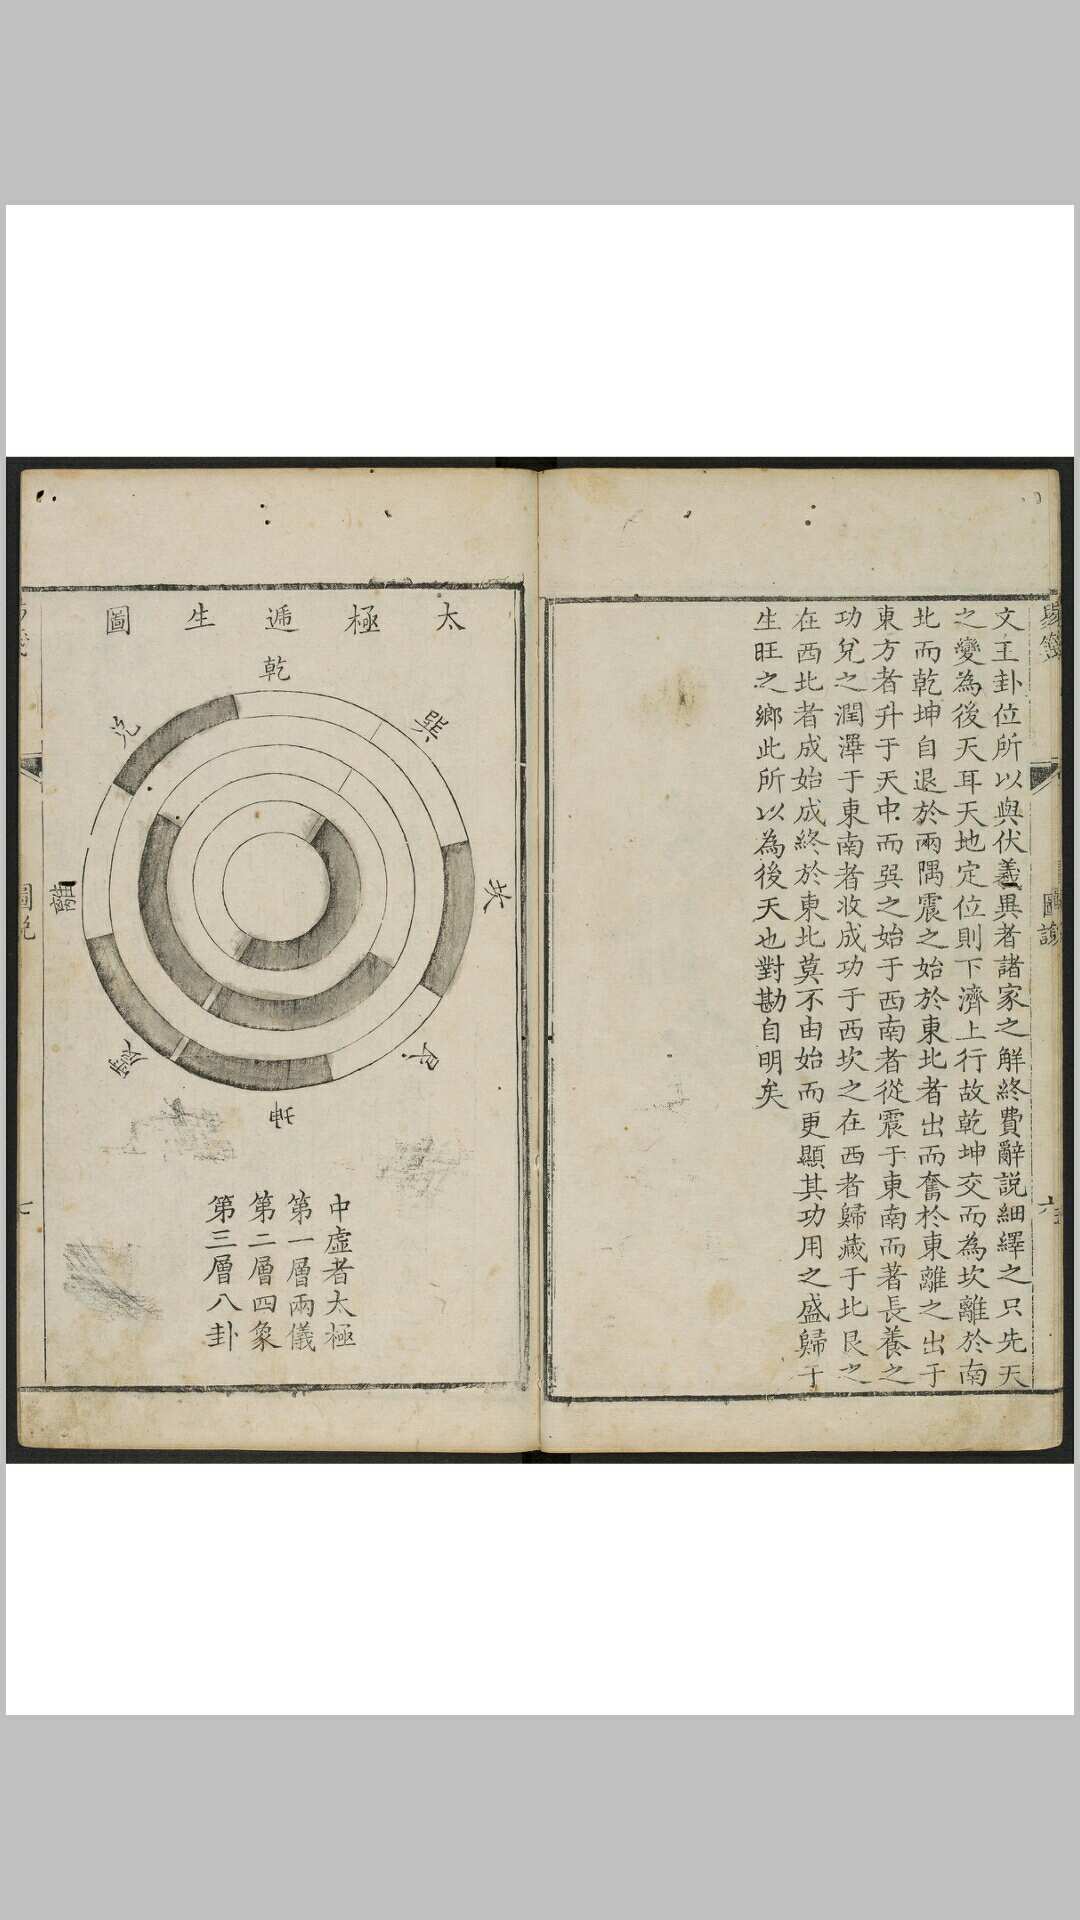 圖說
六
文王卦位所以與伏羲異者諸家之解終費辭說細繹之只先天
之變為後天耳天地定位則下濟上行故乾坤交而為坎離於南
北而乾坤自退於兩隅震之始於東北者出而奮於東離之出于
東方者升于天中而巽之始于西南者從震于東南而著長養之
功兌之潤澤于東南者收成功于西坎之在西者歸藏于北艮之
在西北者成始成終於東北莫不由始而更顯其功用之盛歸于
生旺之鄉此所以為後天也對勘自明矣
太極遞生圖
乾
兌
巽
離
坎
震
艮
坤
中虛者太極
第一層兩儀
第二層四象
第三層八卦
圖說
七